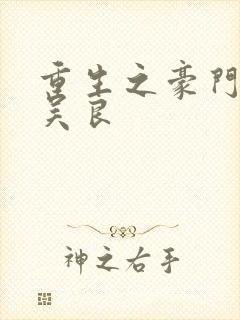 重生之豪門
吴良
神之右手